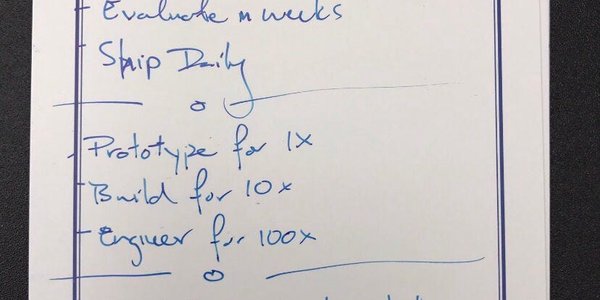 - Evaluate in weeks
- Ship Daily
- Prototype for 1x
- Build for 10x
- Engineer for 100x